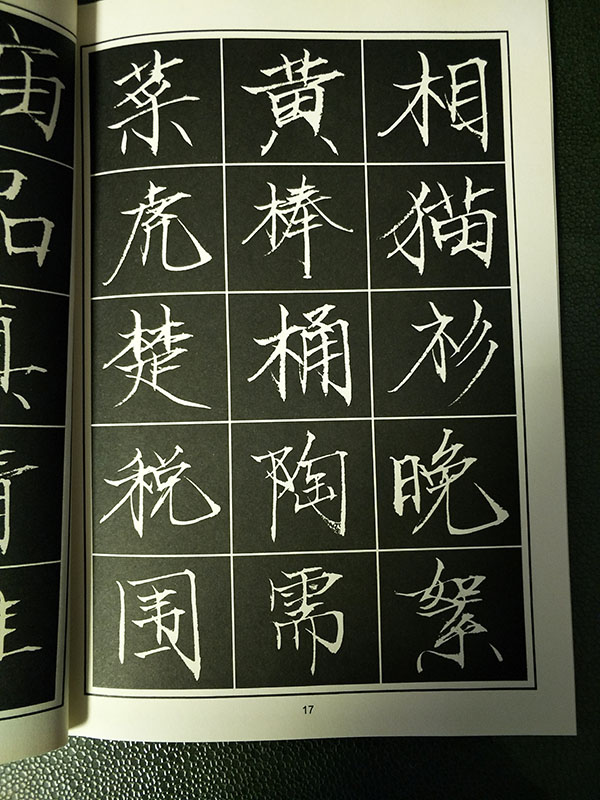 菜 黄 相
虎 棒 猫
楚 桶 衫
税 陶 晚
围 需 絮
17